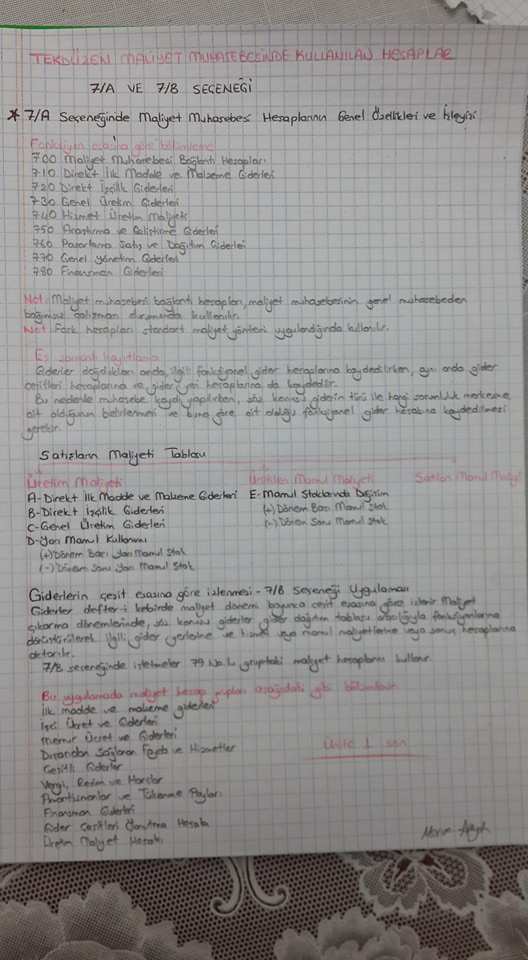 TEKDÜZEN MALİYET MUHASEBESİNDE KULLANILAN HESAPLAR
7/A VE 7/B SEÇENEĞİ
* 7/A Seçeneğinde Maliyet Muhasebesi Hesaplarının Genel Özellikleri ve İşleyişi
Fonksiyon esasına göre bölümleme
700 Maliyet Muhasebesi Bağlantı Hesapları
710 Direkt İlk Madde ve Malzeme Giderleri
720 Direkt İşçilik Giderleri
730 Genel Üretim Giderleri
740 Hizmet Üretim Maliyeti
750 Araştırma ve Geliştirme Giderleri
760 Pazarlama Satış ve Dağıtım Giderleri
770 Genel Yönetim Giderleri
780 Finansman Giderleri
Not: Maliyet muhasebesi bağlantı hesapları, maliyet muhasebesinin genel muhasebeden
bağımsız çalışması durumunda kullanılır.
Not: Fark hesapları standart maliyet yöntemi uygulandığında kullanılır.
Eş zamanlı kayıtlama
Giderler doğdukları anda, ilgili fonksiyonel gider hesaplarına kaydedilirken, aynı anda gider
çeşitleri hesaplarına ve gider yeri hesaplarına da kaydedilir.
Bu nedenle muhasebe kaydı yapılırken, söz konusu giderin türü ile hangi sorumluluk merkezine
ait olduğunun belirlenmesi ve buna göre ait olduğu fonksiyonel gider hesabına kaydedilmesi
gerekir.
Satışların Maliyeti Tablosu
Üretim Maliyeti Üretilen Mamul Maliyeti Satılan Mamul Maliyeti
A-Direkt İlk Madde ve Malzeme Giderleri E-Mamul Stoklarında Değişim
B-Direkt İşçilik Giderleri (+) Dönem Başı Mamul Stok
C-Genel Üretim Giderleri (-) Dönem Sonu Mamul Stok
D-Yarı Mamul Kullanımı
(+) Dönem Başı Yarı Mamul Stok
(-) Dönem Sonu Yarı Mamul Stok
Giderlerin çeşit esasına göre izlenmesi - 7/B Seçeneği Uygulaması
Giderler defter-i kebirde maliyet dönemi boyunca çeşit esasına göre izlenir. Maliyet
çıkarma dönemlerinde, söz konusu giderler gider dağıtım tablosu aracılığıyla fonksiyonlarına
dönüştürülerek ilgili gider yerlerine ve hizmet veya mamul maliyetlerine veya sonuç hesaplarına
aktarılır.
7/B seçeneğinde işletmeler 79 No.lu gruptaki maliyet hesaplarını kullanır.
Bu uygulamada maliyet hesap grupları aşağıdaki gibi bölümlenir
İlk madde ve malzeme giderleri
İşçi Ücret ve Giderleri
Memur Ücret ve Giderleri
Dışarıdan Sağlanan Fayda ve Hizmetler
Çeşitli Giderler
Vergi, Resim ve Harçlar
Amortismanlar ve Tükenme Payları
Finansman Giderleri
Gider Çeşitleri Yansıtma Hesabı
Üretim Maliyet Hesabı
Ünite 1 son